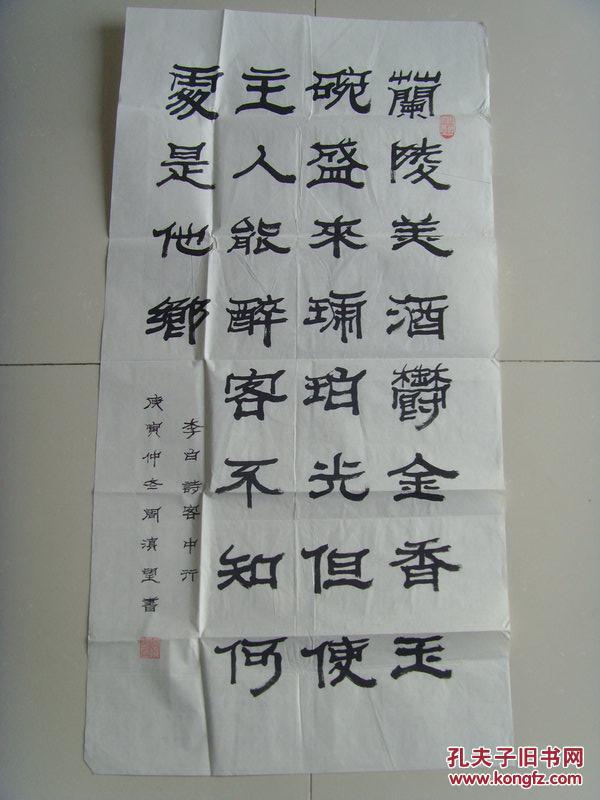 蘭陵美酒鬱金香玉
碗盛來琥珀光但使
主人能醉客不知何
處是他鄉
李白詩客中行
庚寅仲冬周滇望書
孔夫子旧书网
www.kongfz.com